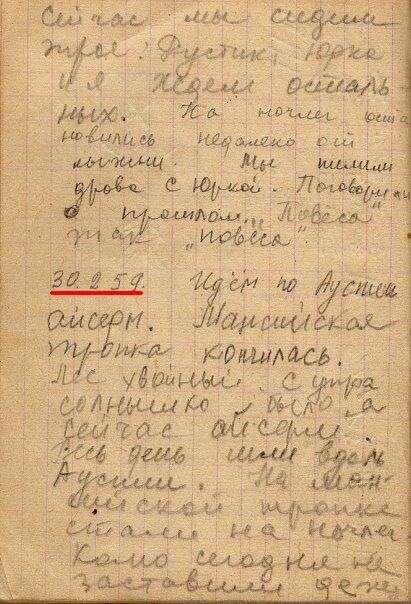 сейчас мы сидим
трое: Рустик, Юрка
и я ждем осталь-
ных. На ночлег оста
новились недалеко от
лыжни. Мы пилили
дрова с Юркой. Поговорили
о прошлом. „Повеса"
так „повеса".
30.2.59. Идём по Ауспии
айсерм. Мансийская
тропка кончилась.
Лес хвойный. С утра
солнышко было а
сейчас айсерм.
Весь день шли вдоль
Ауспии. На ман-
сийской тропке
стали на ночлег
Колю сегодня не
заставили деж